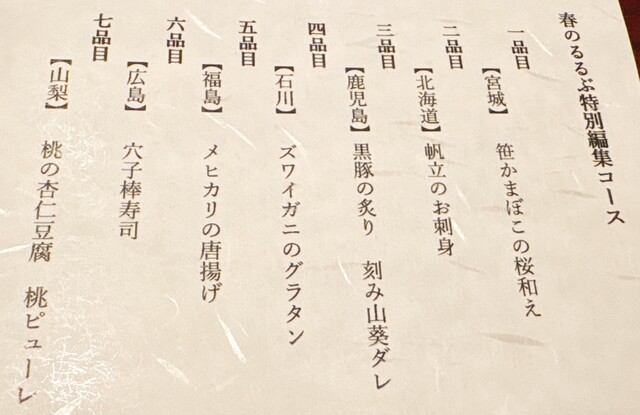 春のるるぶ特別編集コース
一品目
【宮城】 笹かまぼこの桜和え
二品目
【北海道】 帆立のお刺身
三品目
【鹿児島】 黒豚の炙り 刻み山葵ダレ
四品目
【石川】 ズワイガニのグラタン
五品目
【福島】 メヒカリの唐揚げ
六品目
【広島】 穴子棒寿司
七品目
【山梨】 桃の杏仁豆腐 桃ピューレ